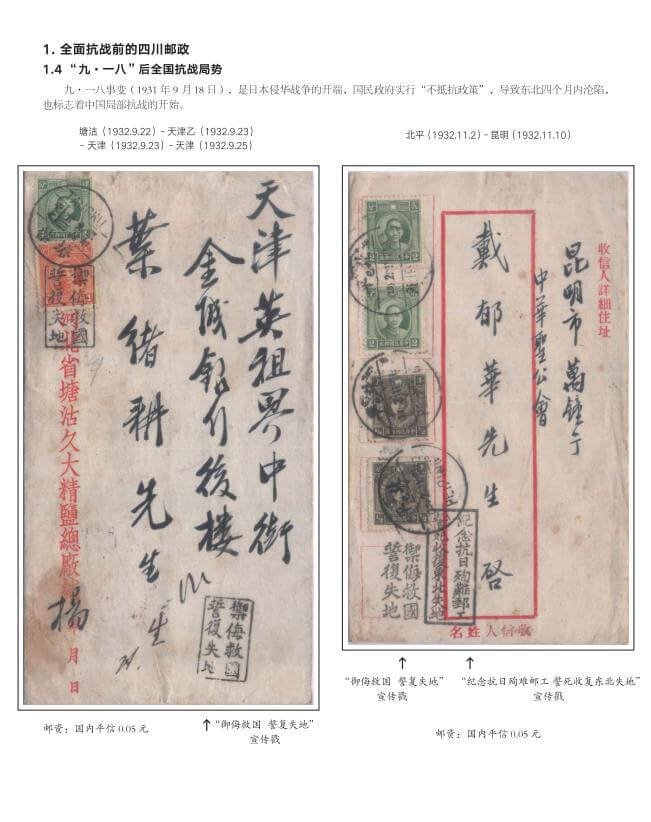 1. 全面抗战前的四川邮政
1.4 “九·一八”后全国抗战局势
九·一八事变（1931 年 9 月 18 日），是日本侵华战争的开端，国民政府实行“不抵抗政策”，导致东北四个月内沦陷，
也标志着中国局部抗战的开始。
塘沽（1932.9.22）- 天津乙（1932.9.23）
- 天津（1932.9.23）- 天津（1932.9.25）
北平（1932.11.2）- 昆明（1932.11.10）
天津英租界中街
金城銀行後樓
葉緒耕先生
禦侮救國
誓復失地
河北省塘沽久大精鹽總廠
楊
年月日
禦侮救國
誓復失地
收信人詳細住址
昆明市萬鍾
中華聖公會
戴郁華先生 啓
紀念抗日殉難郵工
誓死收復東北失地
禦侮救國
誓復失地
收信人姓名
“御侮救国 誓复失地”
宣传戳
“纪念抗日殉难邮工 誓死收复东北失地”
宣传戳
邮资：国内平信 0.05 元
“御侮救国 誓复失地”
宣传戳
邮资：国内平信 0.05 元